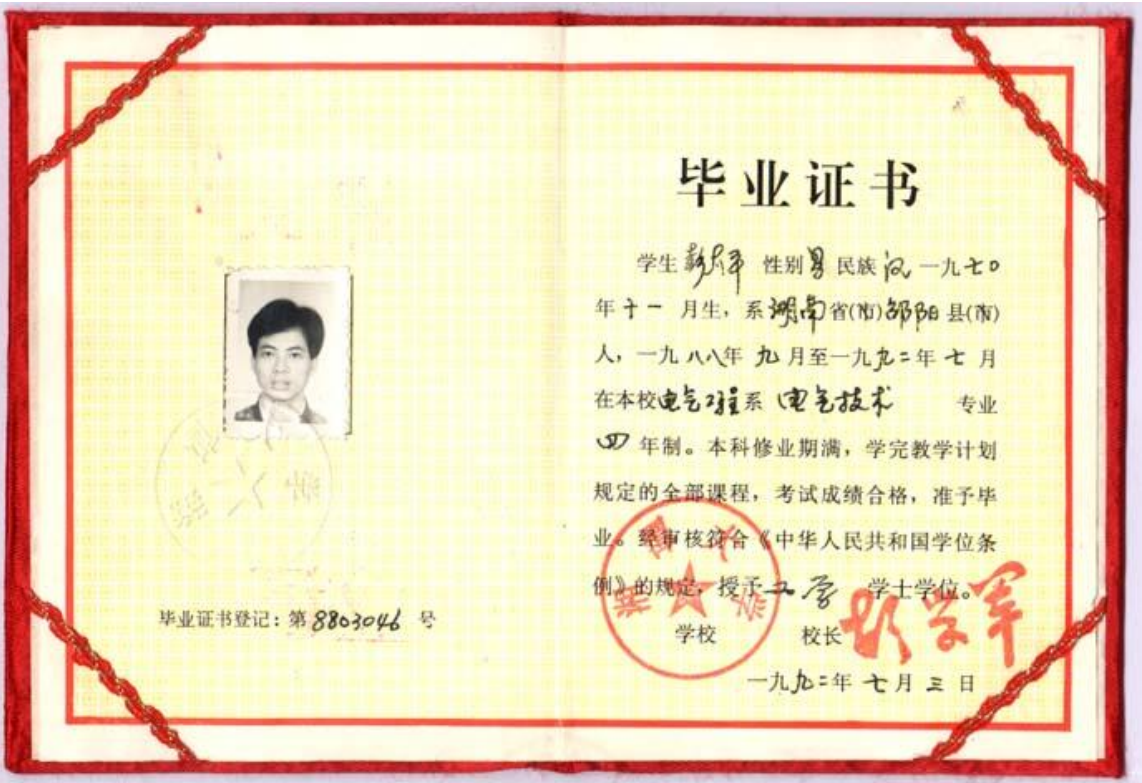 毕业证书登记：第8803046 号
毕业证书
学生 彭 性别 男 民族 汉 一九七〇
年十一 月生，系湖南省(市)邵阳县(市)
人，一九八八年 九 月至一九九二年 七 月
在本校电气工程系 电气技术 专业
四 年制。本科修业期满，学完教学计划
规定的全部课程，考试成绩合格，准予毕
业。经审核符合《中华人民共和国学位条
例》的规定，授予工学 学士学位。
学校 校长
一九九二年 七 月 三 日